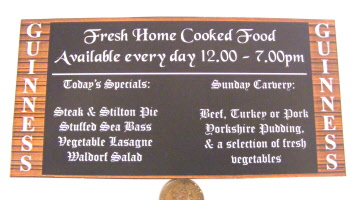 GUINNESS
Fresh Home Cooked Food
Available every day 12.00 - 7.00pm
Today's Specials:
Steak & Stilton Pie
Stuffed Sea Bass
Vegetable Lasagne
Waldorf Salad
Sunday Carvery:
Beef, Turkey or Pork
Yorkshire Pudding,
& a selection of fresh
vegetables
GUINNESS